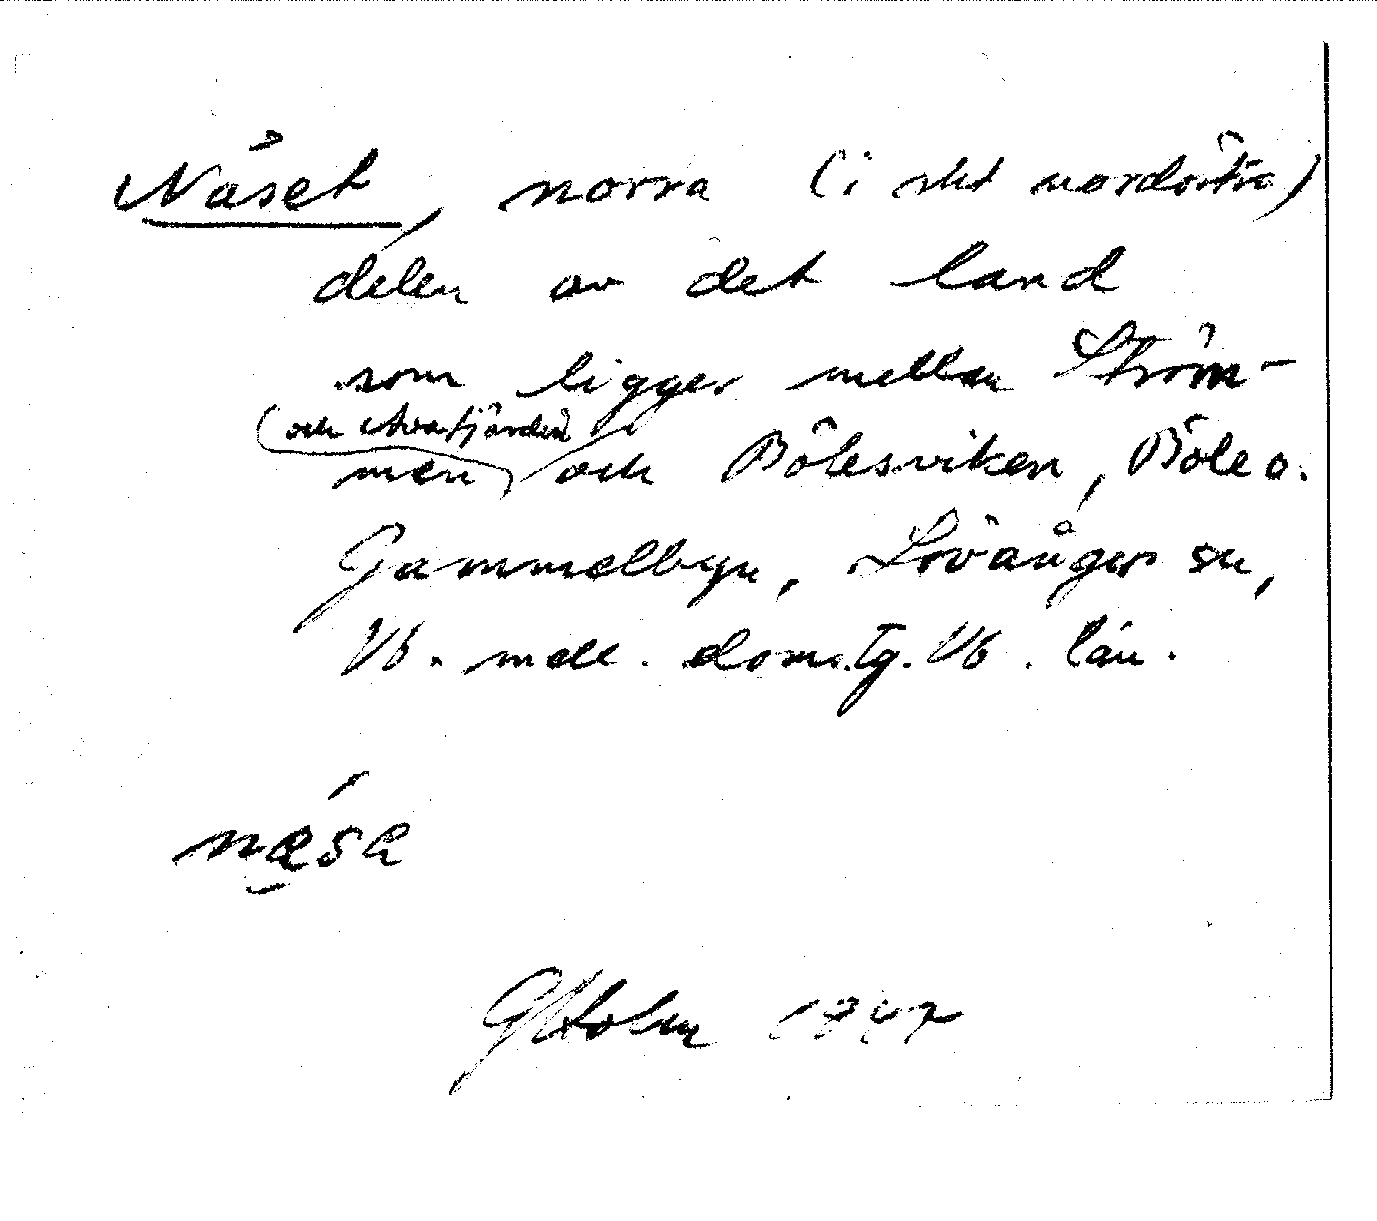 Näset, norra (i skt nordöstra)
delen av det land
som ligger mellan Ström-
(och Avafjärden)
men och Bölesviken, Böle o.
Gammelbyn, Lövångers sn,
Vb. mell. doms.tg. Vb. län.
nǽ̣sa
GHolm 1947